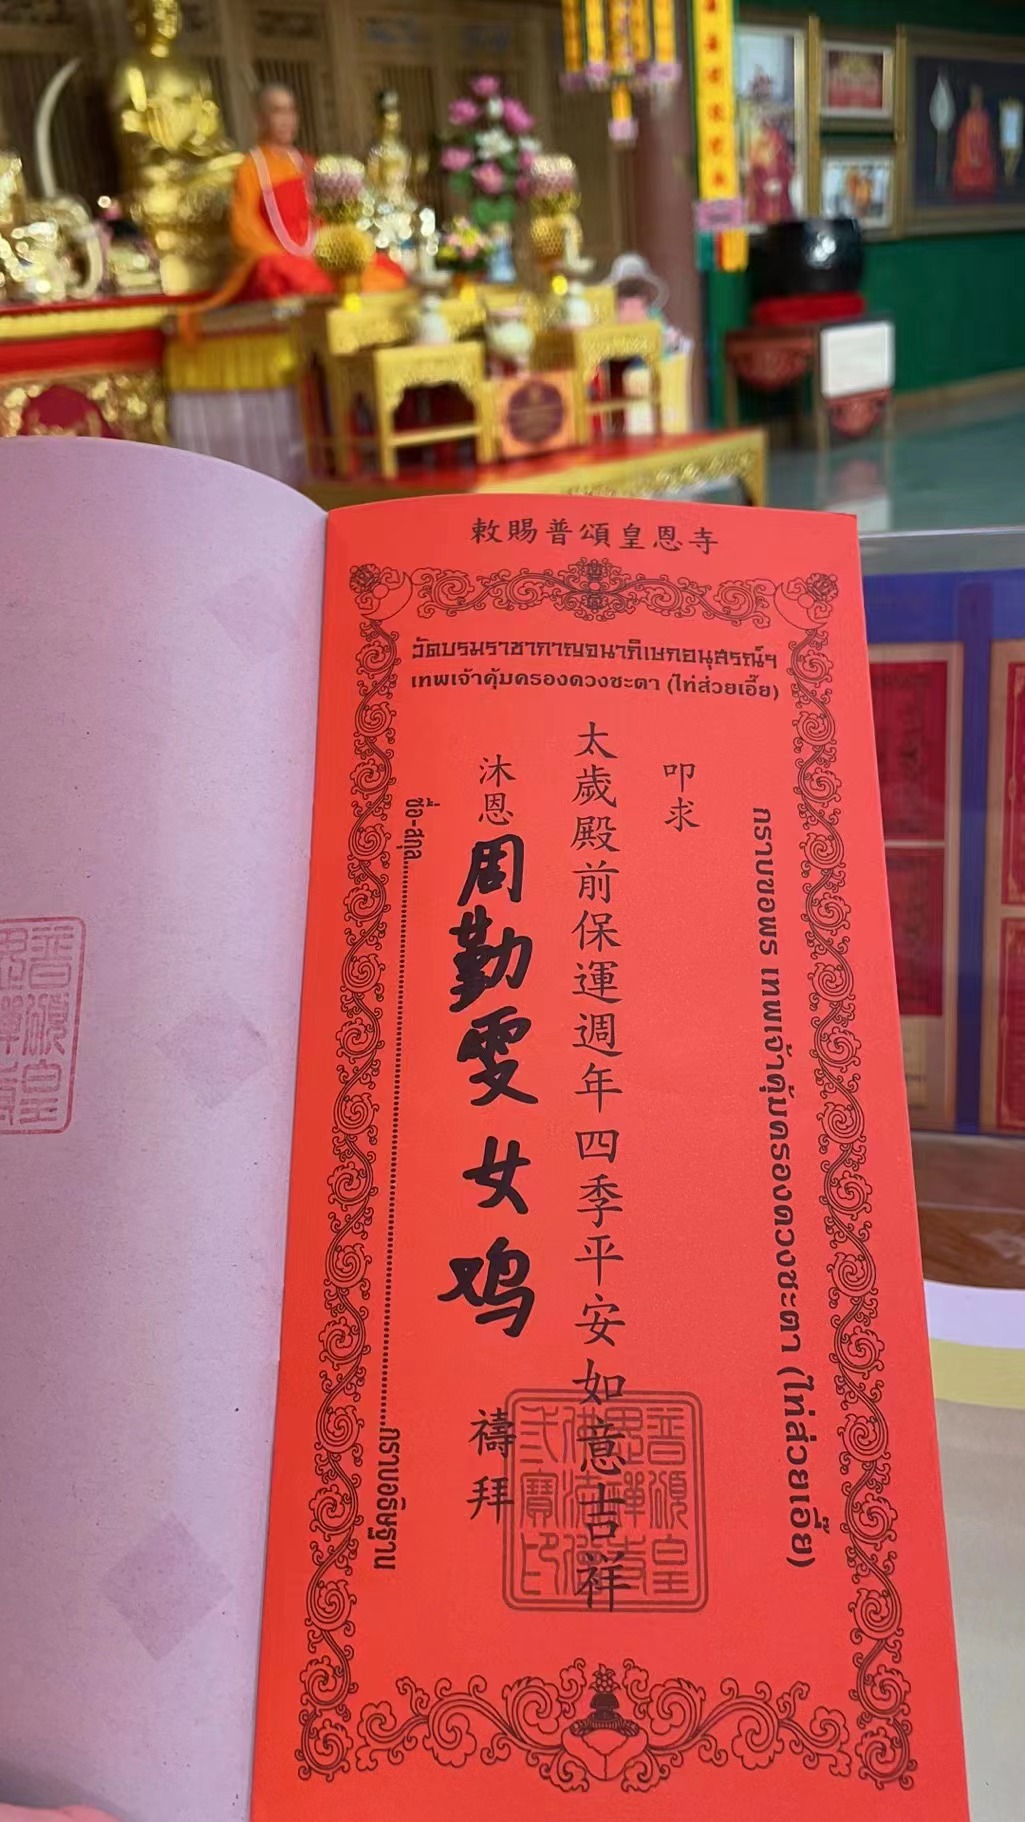 敕賜普頌皇恩寺
วัดบรมราชากาญจนาภิเษกอนุสรณ์ฯ
เทพเจ้าคุ้มครองดวงชะตา (ไท่ส่วยเอี๊ย)
กราบขอพร เทพเจ้าคุ้มครองดวงชะตา (ไท่ส่วยเอี๊ย)
叩求
太歲殿前保運週年四季平安如意吉祥
沐恩 周勤雯 女 鸡 禱拜
ชื่อ-สกุล...กราบอธิษฐาน